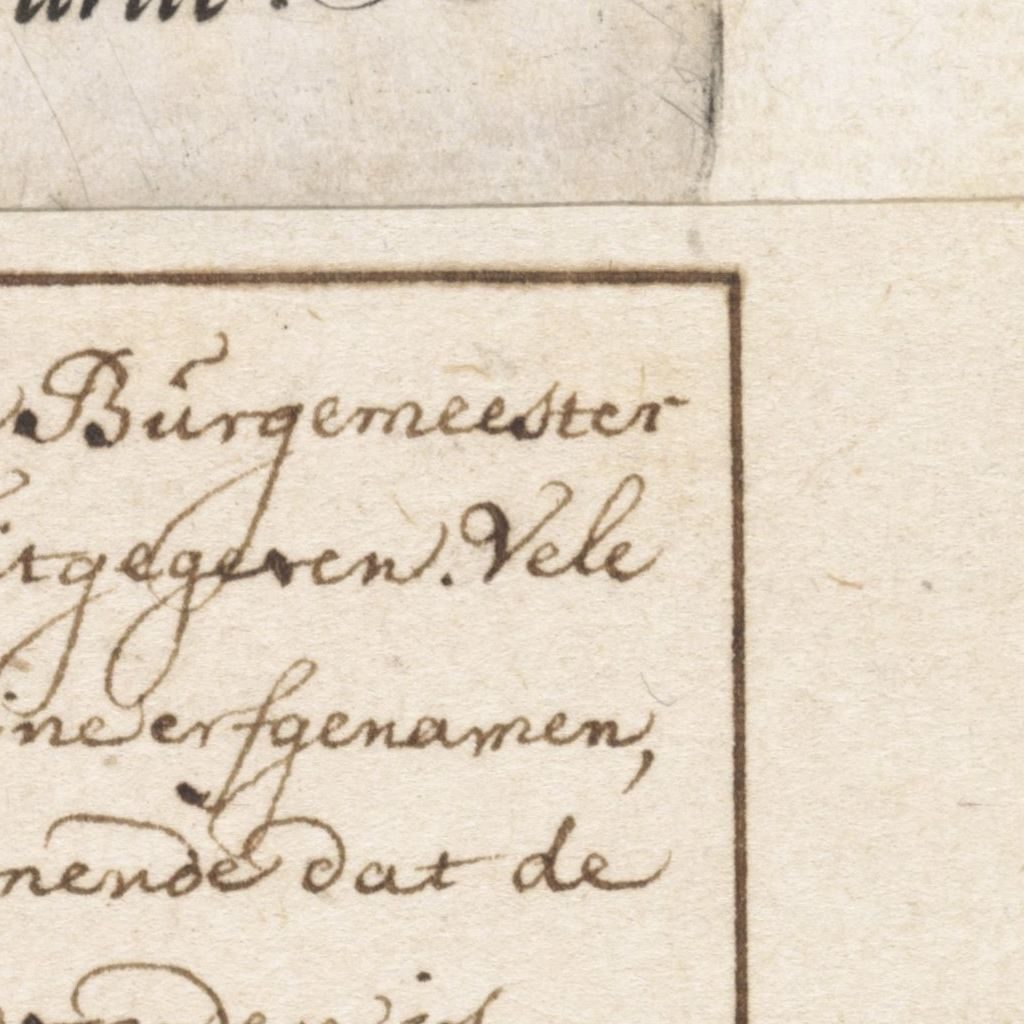 Bürgemeester
itgegeven. Vele
ine erfgenamen,
nende dat de